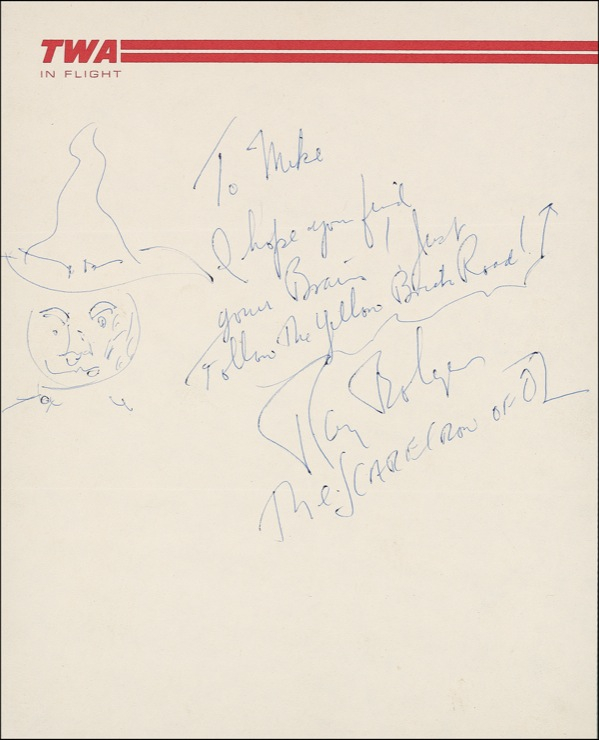 TWA
IN FLIGHT
To Mike
I hope you find
your Brain! Just
Follow The Yellow Brick Road!
Ray Bolger
The SCARECROW OF OZ